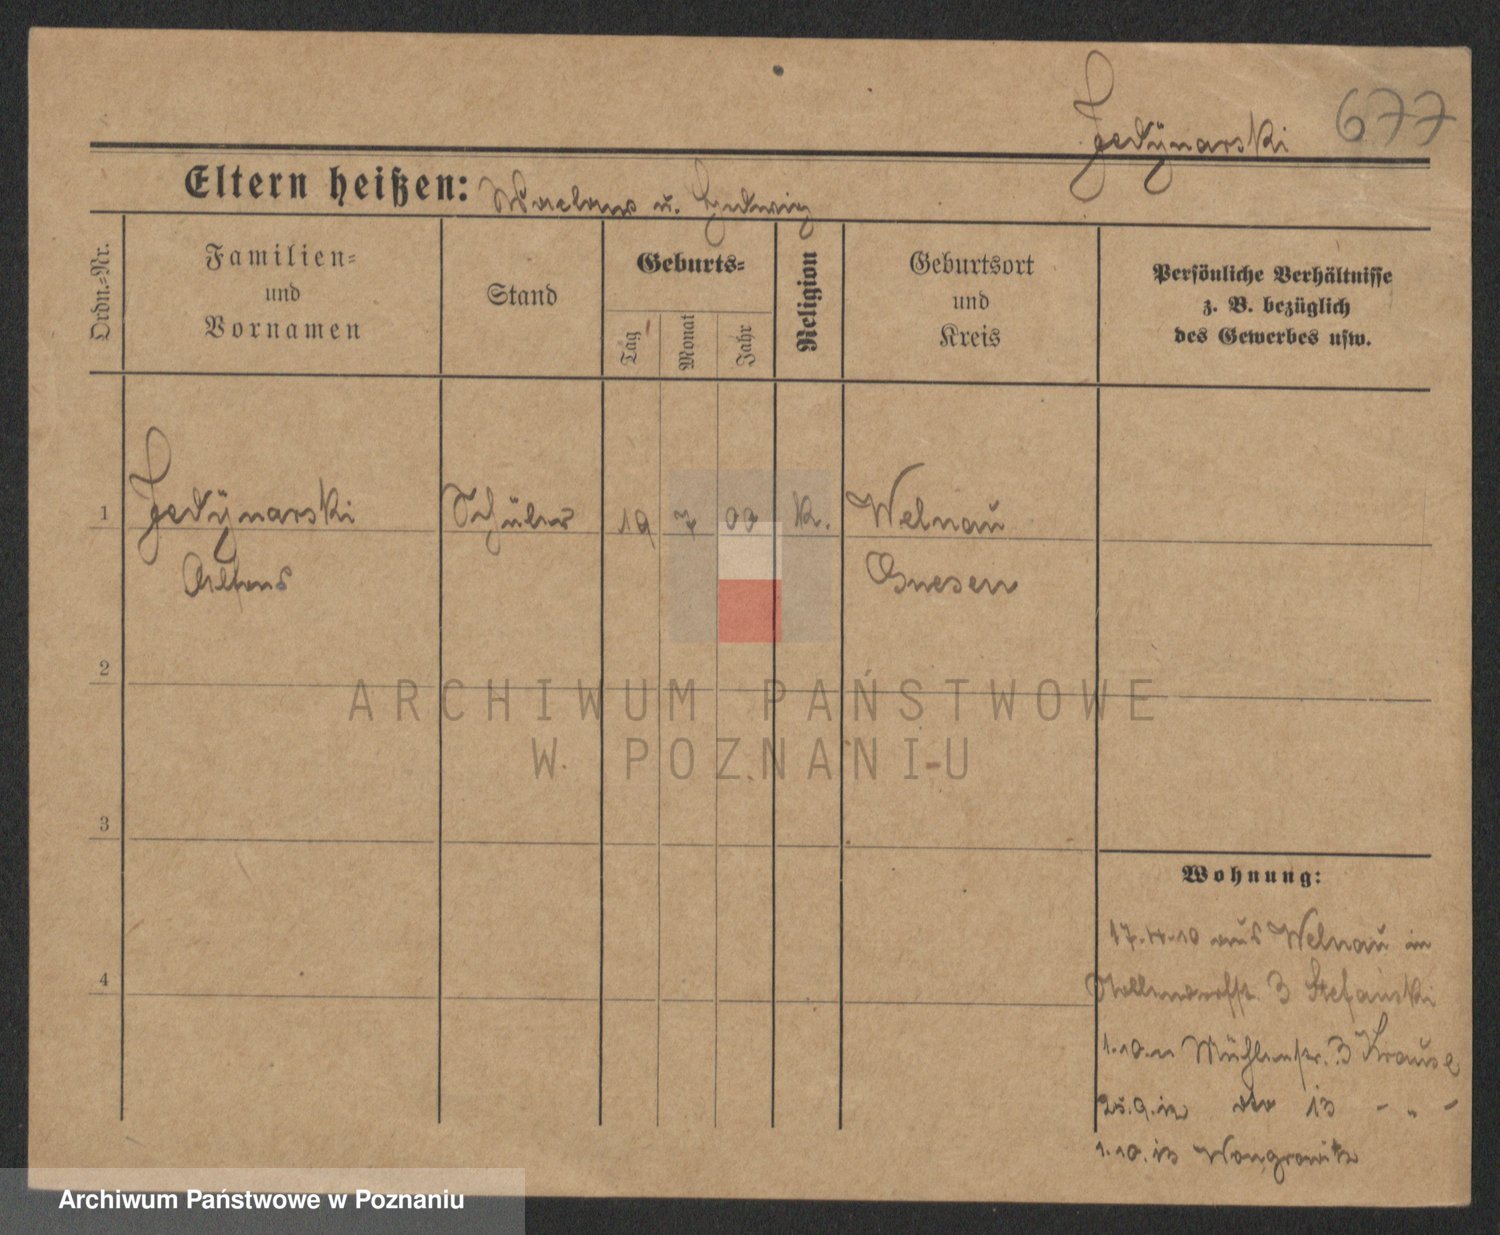 Jedÿnarski 677
Eltern heißen: Waclaw u. Hedwig
Ordn.=Nr.
Familien=
und
Vornamen
Stand
Geburts=
Tag
Monat
Jahr
Religion
Geburtsort
und
Kreis
Persönliche Verhältnisse
z. B. bezüglich
des Gewerbes usw.
1 Jedÿnarski Schüler 19 7 03 K. Welnau
Alfons Gnesen
2
ARCHIWUM PAŃSTWOWE
W POZNANIU
3
Wohnung:
17.4.10 aus Welnau in
4
3 Stefanski
1.10.11 Mühlenstr. 3 Krause
25.9.12 dto 13 - " -
1.10.13 Wongrowitz
Archiwum Państwowe w Poznaniu